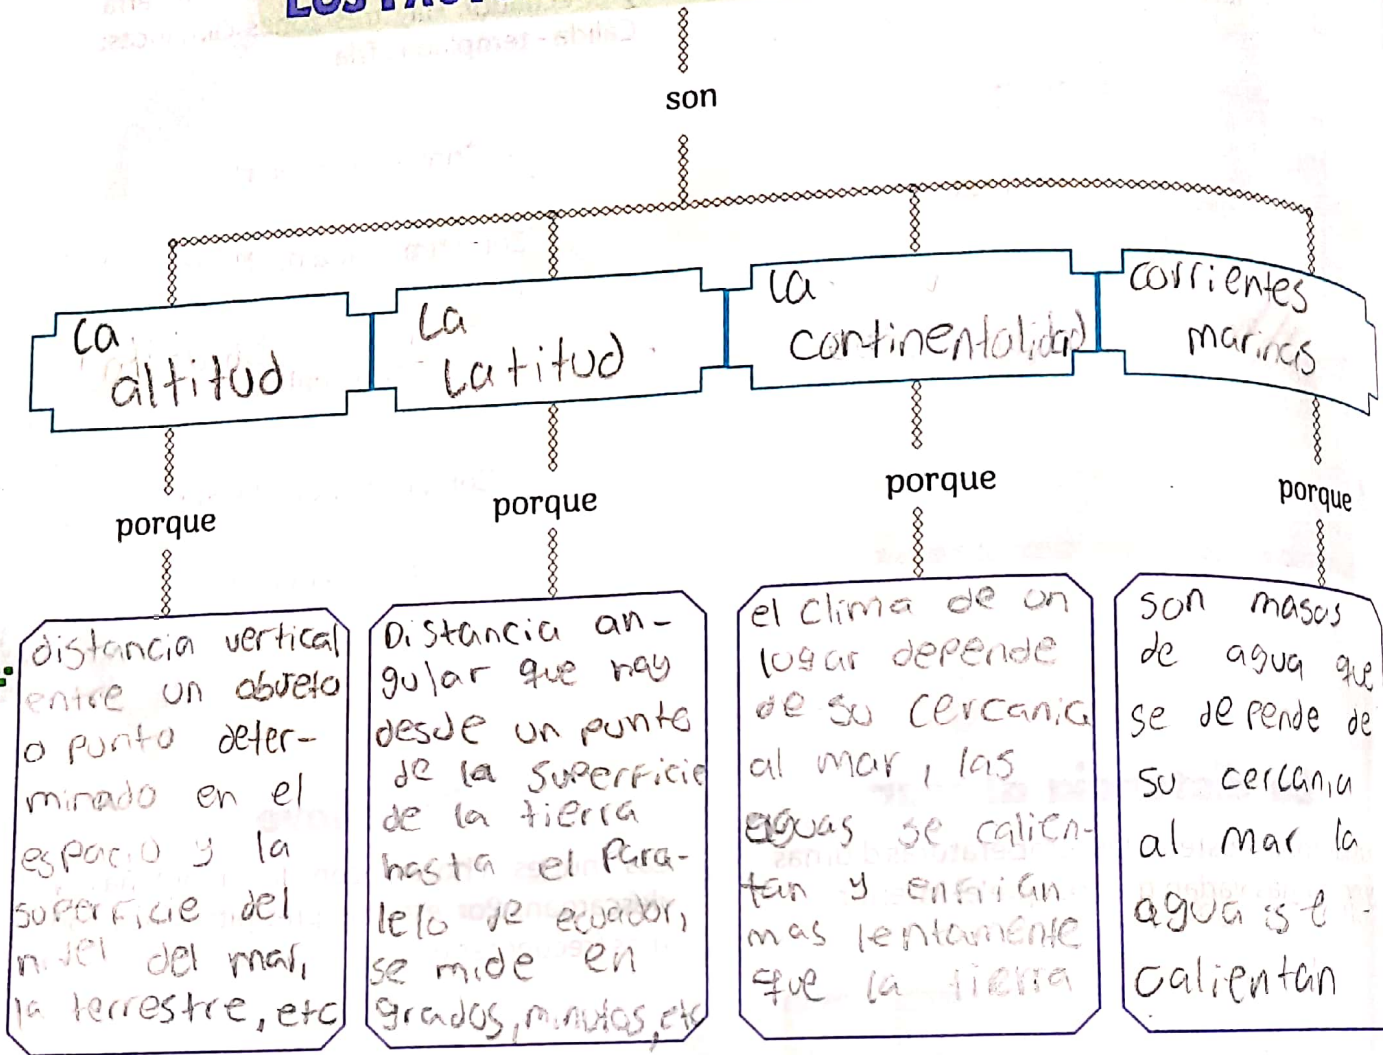 LOS FACT
son
La
altitud
La
Latitud
la
continentalidad
corrientes
marinas
porque
porque
porque
porque
distancia vertical
entre un objeto
o punto deter-
minado en el
espacio y la
superficie del
nivel del mar,
la terrestre, etc
Distancia an-
gular que hay
desde un punto
de la superficie
de la tierra
hasta el para-
lelo de ecuador,
se mide en
grados, minutos, etc
el clima de un
lugar depende
de su cercania
al mar, las
aguas se calien-
tan y enfrian
mas lentamente
que la tierra
son masas
de agua que
se depende de
su cercania
al mar la
agua se
calientan